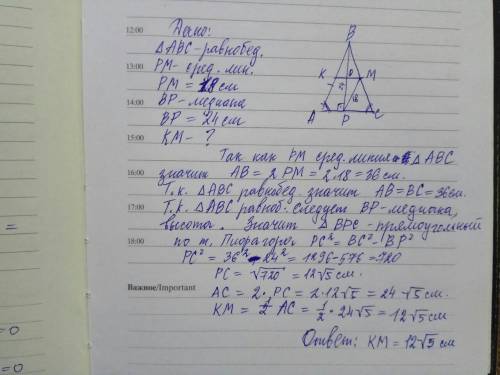 12:00 Дано:
△ABC - равнобед.
13:00 PM - сред. лин.
PM = 18 см
14:00 BP - медиана
BP = 24 см
15:00 KM - ?
B
K M
A P C
18
Так как PM сред. линия △ABC
16:00 значит AB = 2 PM = 2·18 = 36 см.
Т.к. △ABC равнобед. значит AB = BC = 36 см.
17:00 Т.к. △ABC равноб. следует BP - медиана,
высота. Значит △BPC - прямоугольный
18:00 по т. Пифагора. PC² = BC² - BP²
PC² = 36² - 24² = 1296 - 576 = 720
PC = √720 = 12√5 см.
Важное/Important AC = 2 · PC = 2·12√5 = 24·√5 см.
KM = 1/2 AC = 1/2 · 24√5 = 12√5 см
Ответ: KM = 12√5 см
=
=0
=0